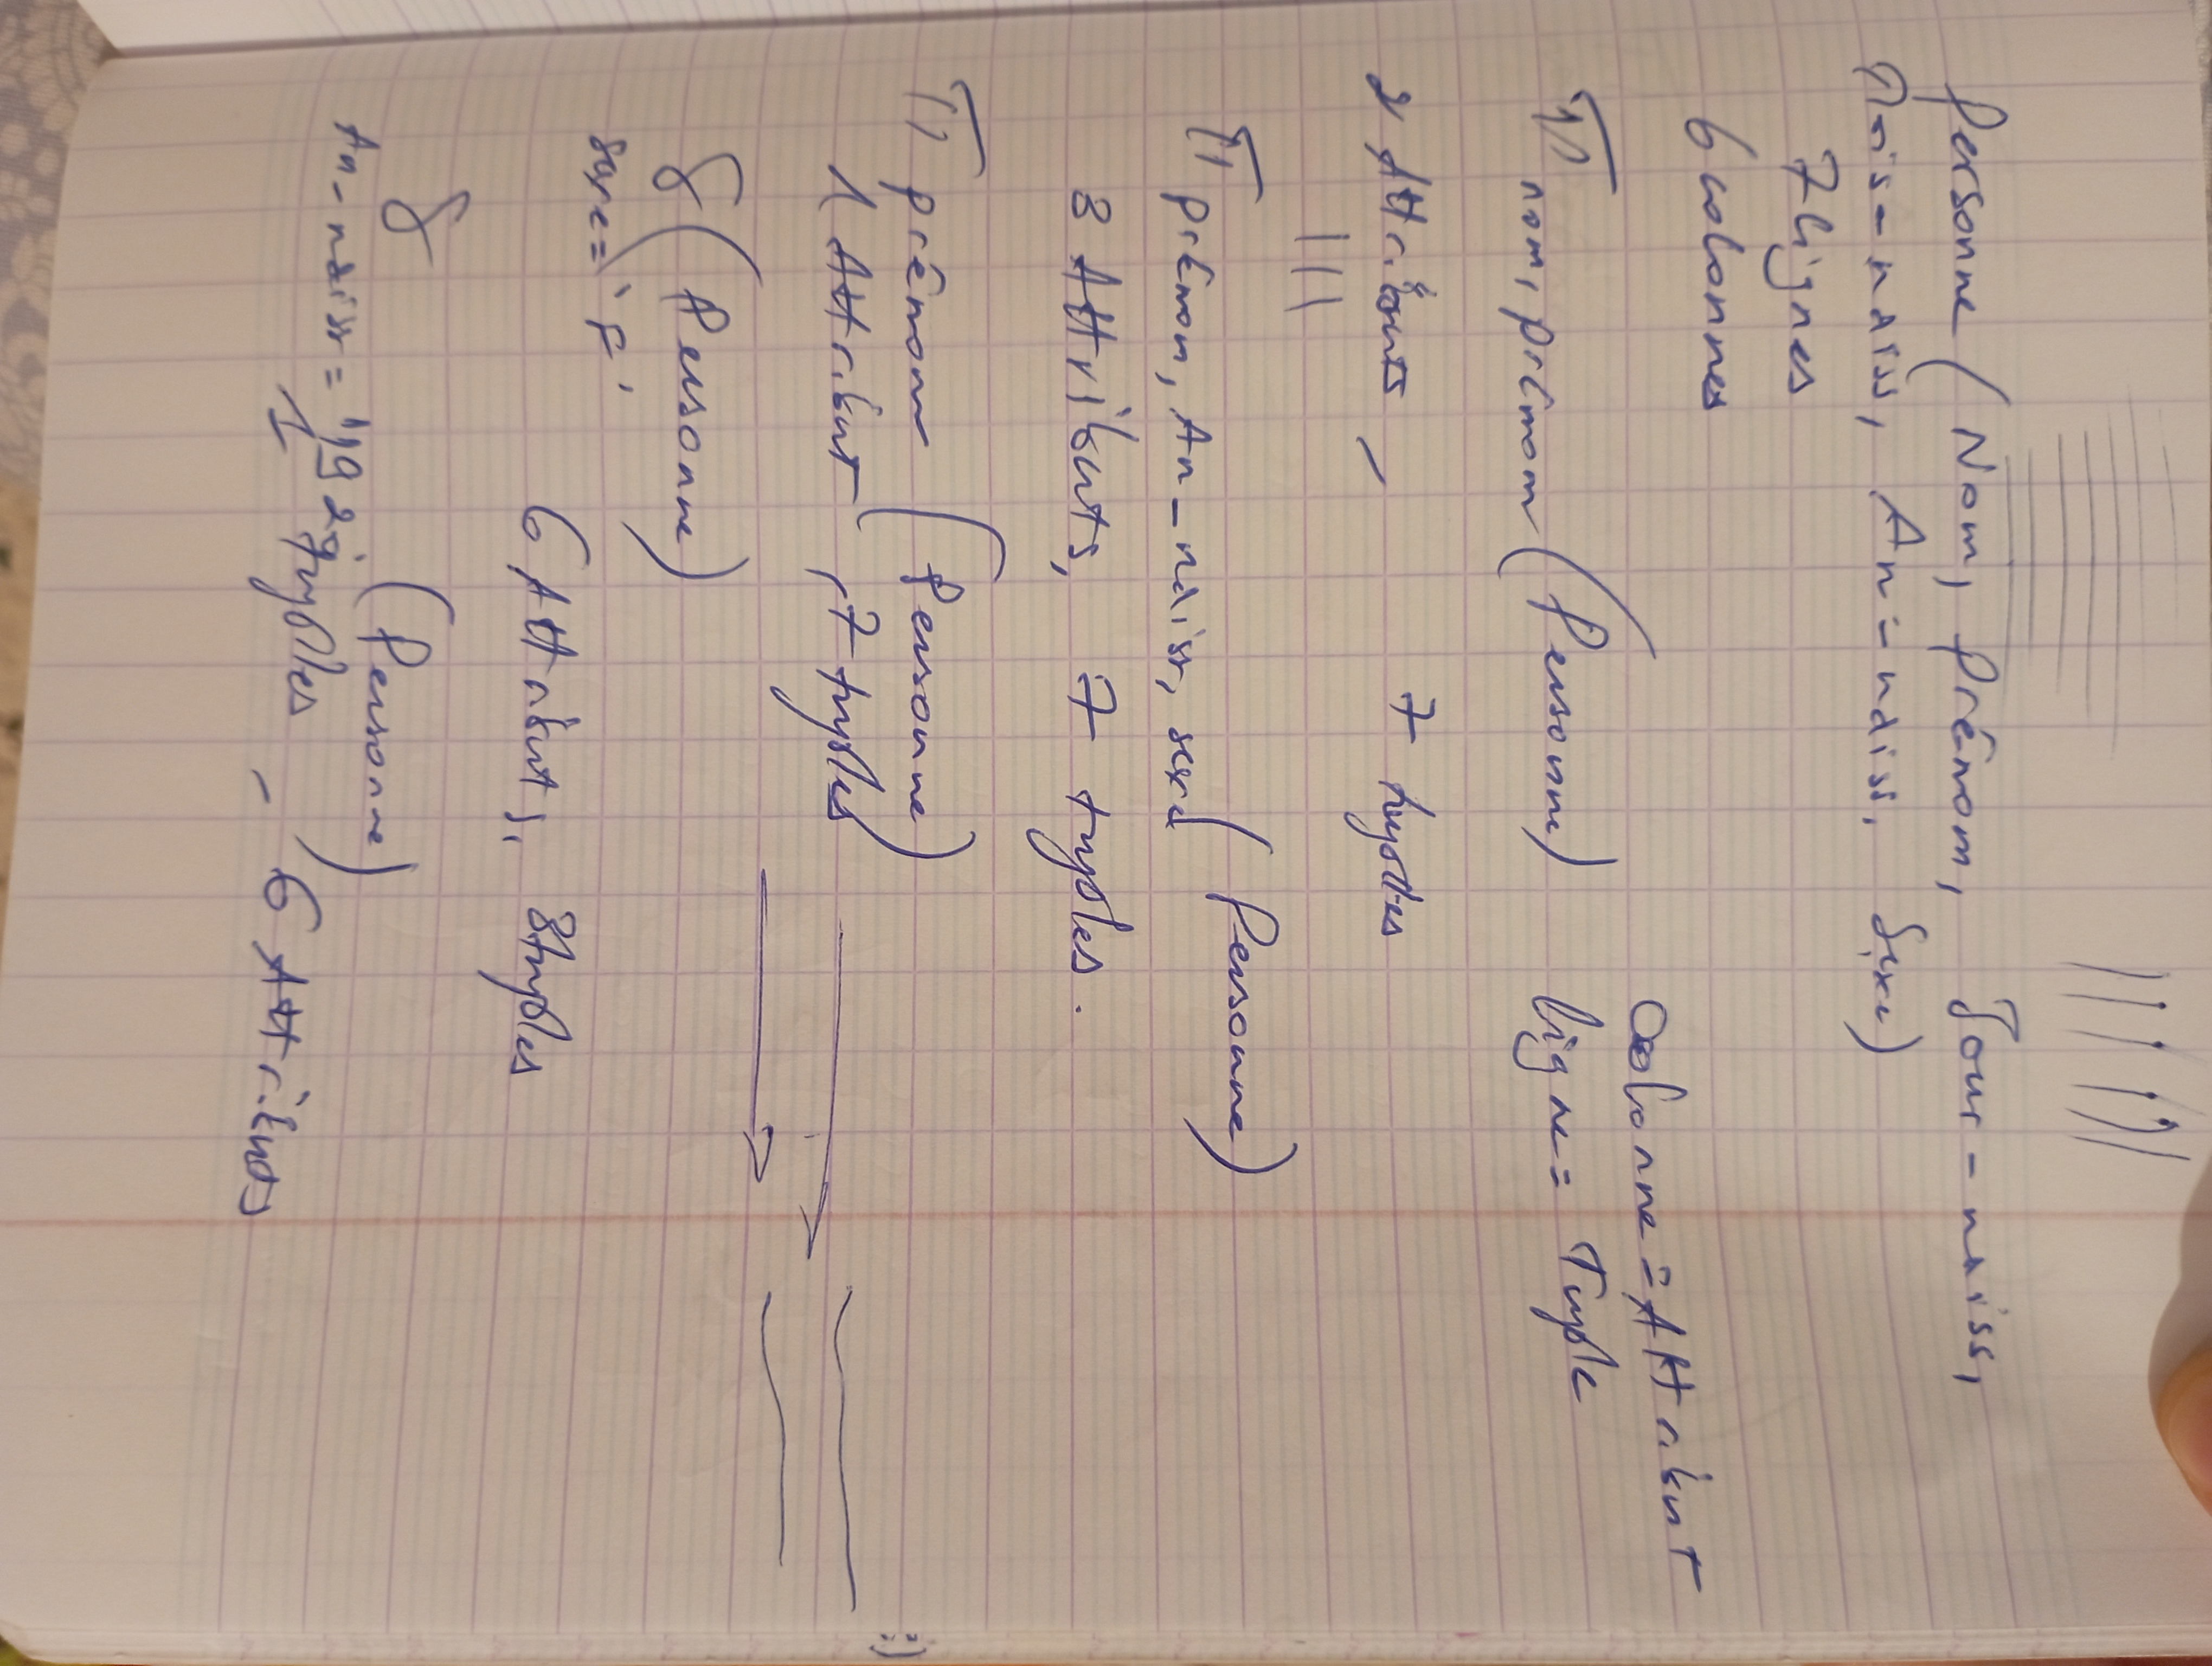 Personne (Nom, Prénom, Jour-naiss,
Mois-naiss, An-naiss, Sexe)
7 lignes
6 colonnes
Colonne = Attribut
ligne = Tuple
π nom, prénom (Personne)
2 Attributs, 7 tuples
π prénom, An-naiss, sexe (Personne)
3 Attributs, 7 tuples.
π prénom (Personne)
1 Attribut, 7 tuples
δ (Personne)
sexe = 'F'
6 Attributs, 3 tuples
δ (Personne)
An-naiss =
1 tuples, 6 Attributs